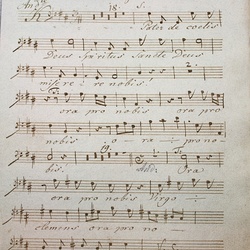 And:
18. S.
Pater de coelis
Deus Spiritus Sancte Deus
miserere nobis. 2.
ora pro nobis ora pro
nobis ora pro no
bis. Ora
ora pro nobis Virgo
clemens ora pro no